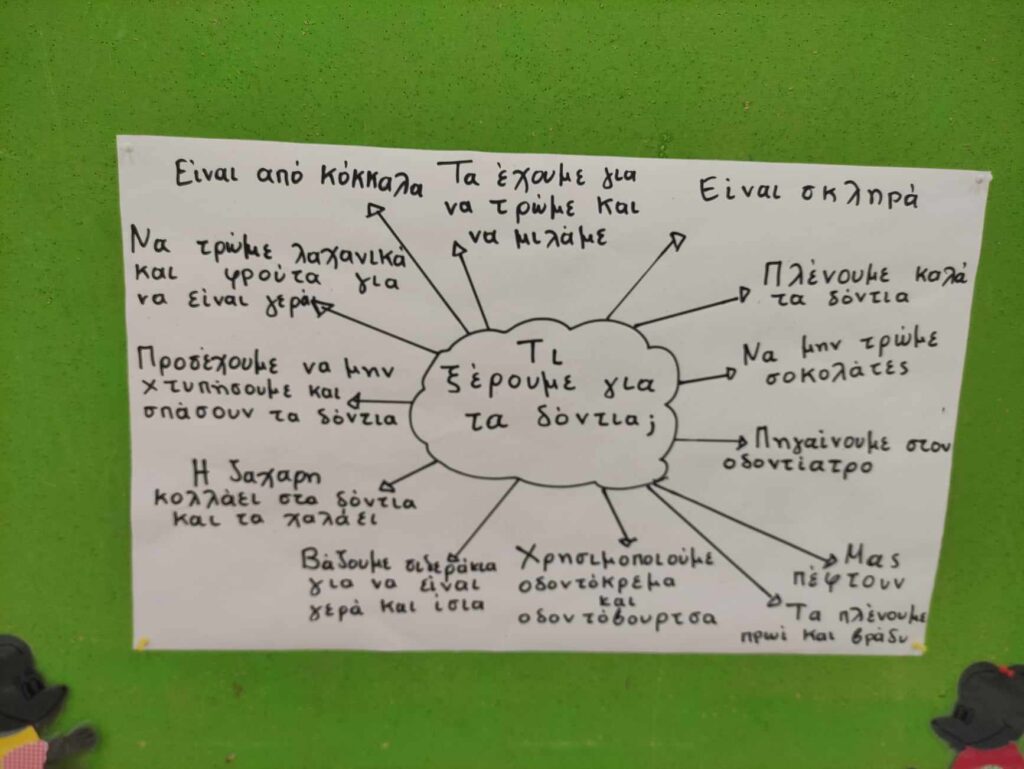 Τι
ξέρουμε για
τα δόντια;
Είναι από κόκκαλα
Τα έχουμε για
να τρώμε και
να μιλάμε
Είναι σκληρά
Πλένουμε καλά
τα δόντια
Να μην τρώμε
σοκολάτες
Πηγαίνουμε στον
οδοντίατρο
Μας
πέφτουν
Τα πλένουμε
πρωί και βράδυ
Χρησιμοποιούμε
οδοντόκρεμα
και
οδοντόβουρτσα
Βάζουμε σιδεράκια
για να είναι
γερά και ίσια
Η ζαχαρη
κολλάει στα δόντια
και τα χαλάει
Προσέχουμε να μην
χτυπήσουμε και
σπάσουν τα δόντια
Να τρώμε λαχανικά
και φρούτα για
να είναι γερά